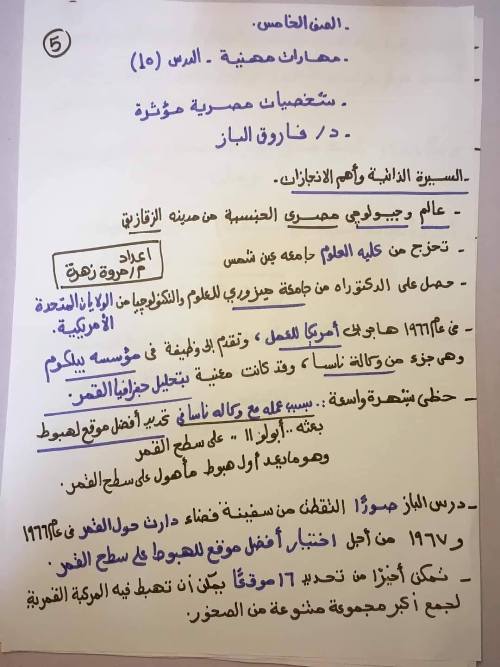 (5)
- الصف الخامس.
- مهارات مهنية - الدرس (10)
- شخصيات مصرية مؤثرة
- د/ فاروق الباز
- السيرة الذاتية وأهم الانجازات.
- عالم وجيولوجي مصري الجنسية من مدينه الزقازيق
- تخرج من كليه العلوم جامعه عين شمس
اعداد
م/ مروة زهرة
- حصل على الدكتوراه من جامعة ميزوري للعلوم والتكنولوجيا من الولايات المتحدة
الأمريكية.
- فى عام ١٩٦٦ هاجر إلى أمريكا للعمل، وتقدم إلى وظيفة فى مؤسسه بيلكوم
وهى جزء من وكالة ناسا، وقد كانت معنية بتحليل جغرافيا القمر.
- حظى بشهرة واسعة:. بسبب عمله مع وكاله ناسا فى تحديد أفضل موقع لهبوط
بعثه "أبولو 11" على سطح القمر
وهو ما يعد أول هبوط مأهول على سطح القمر.
- درس الباز صورًا التقطت من سفينة فضاء دارت حول القمر فى عام ١٩٦٦
و ١٩٦٧ من أجل اختيار أفضل موقع للهبوط على سطح القمر.
- تمكن أخيرًا من تحديد ١٦ موقعًا يمكن أن تهبط فيه المركبة القمرية
لجمع أكبر مجموعة متنوعة من الصخور.